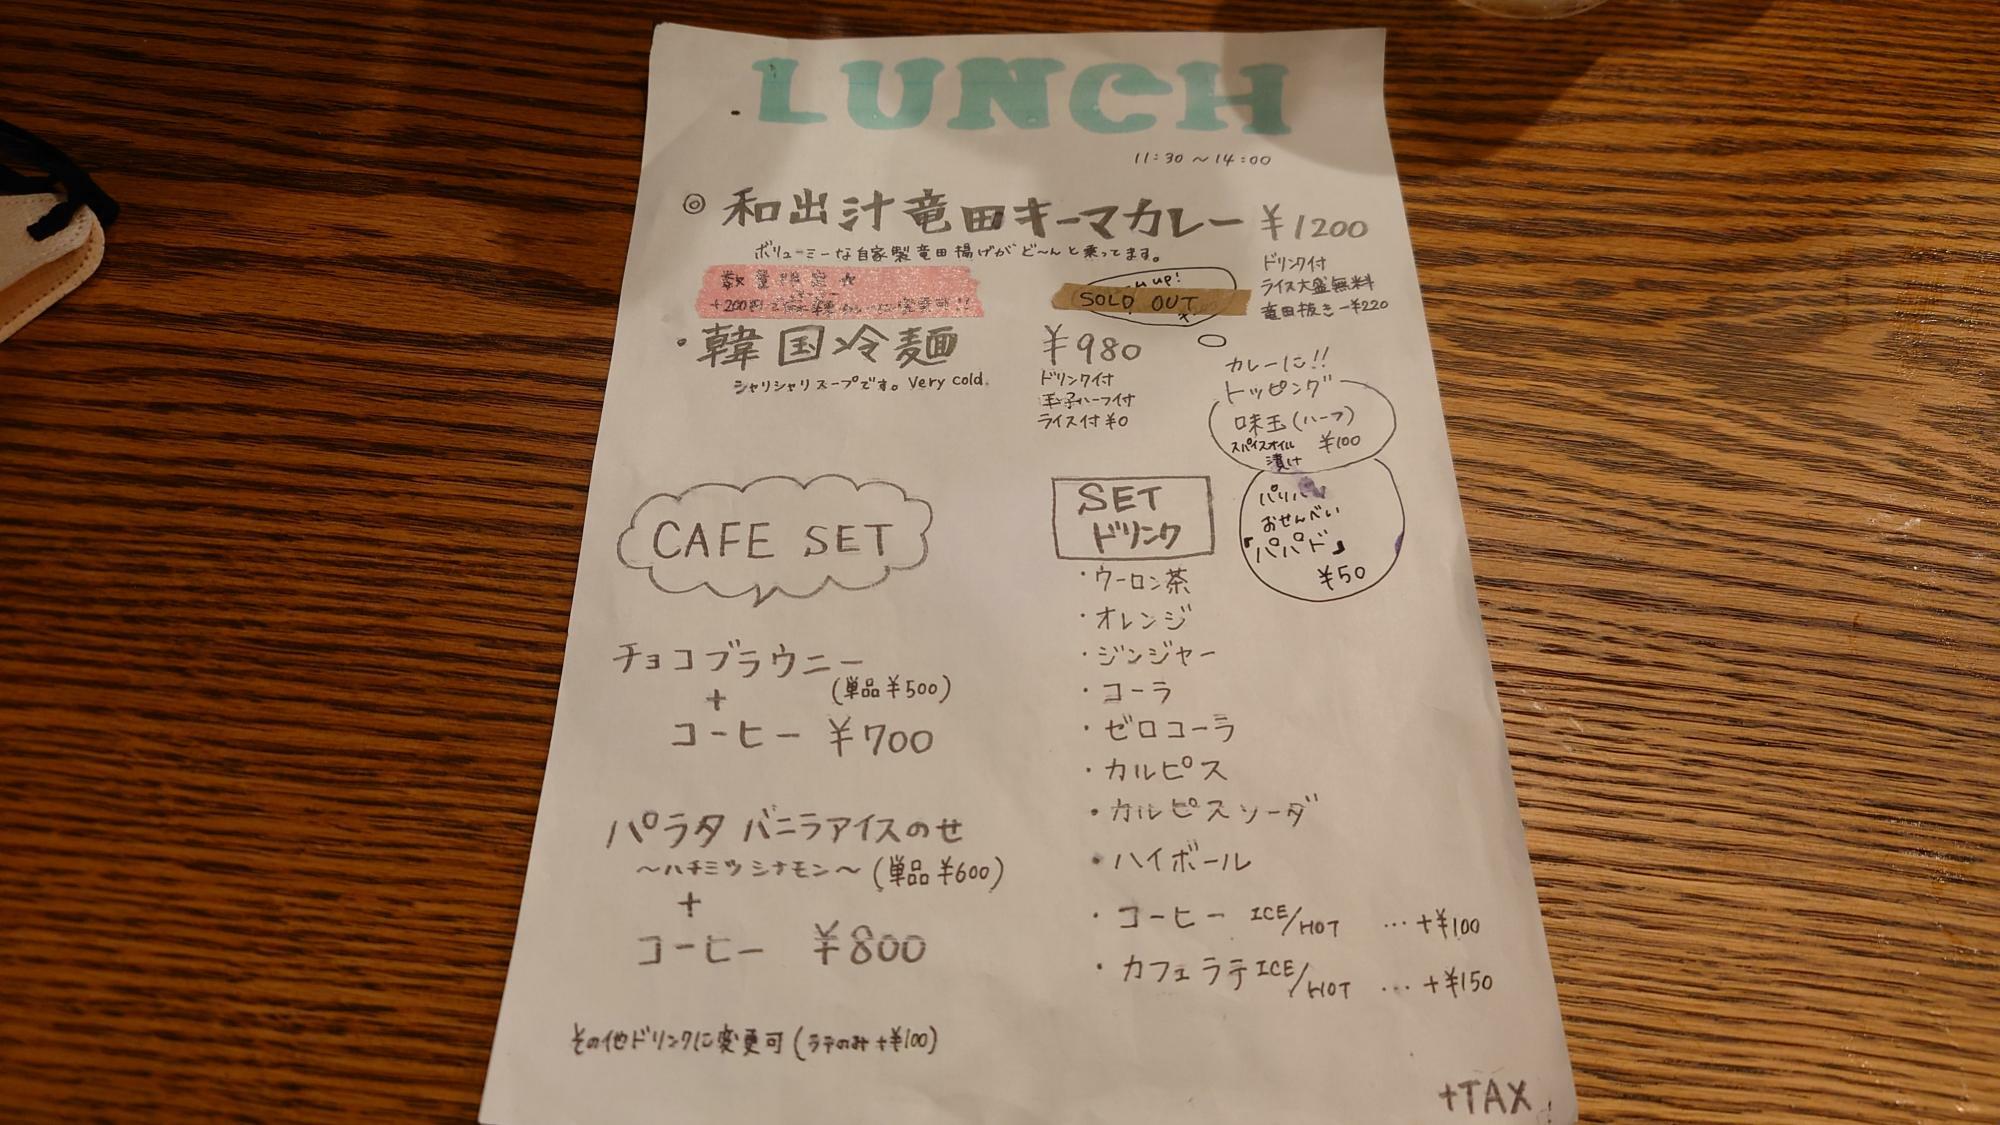 LUNCH
11:30～14:00
◎ 和出汁竜田キーマカレー ¥1200
ボリューミーな自家製竜田揚げがど〜んと乗ってます。
ドリンク付
ライス大盛無料
竜田抜き -¥220
数量限定☆
+200円で
変更可!!
up!
SOLD OUT
・韓国冷麺 ¥980
シャリシャリスープです。Very cold.
ドリンク付
玉子ハーフ付
ライス付 ¥0
カレーに!!
トッピング
味玉(ハーフ)
スパイスオイル ¥100
漬け
パリパリ
おせんべい
「パパド」
¥50
CAFE SET
チョコブラウニー
(単品¥500)
+
コーヒー ¥700
パラタ バニラアイスのせ
～ハチミツシナモン～ (単品¥600)
+
コーヒー ¥800
その他ドリンクに変更可(ラテのみ+¥100)
SET
ドリンク
・ウーロン茶
・オレンジ
・ジンジャー
・コーラ
・ゼロコーラ
・カルピス
・カルピスソーダ
・ハイボール
・コーヒー ICE/HOT …+¥100
・カフェラテ ICE/HOT …+¥150
+TAX